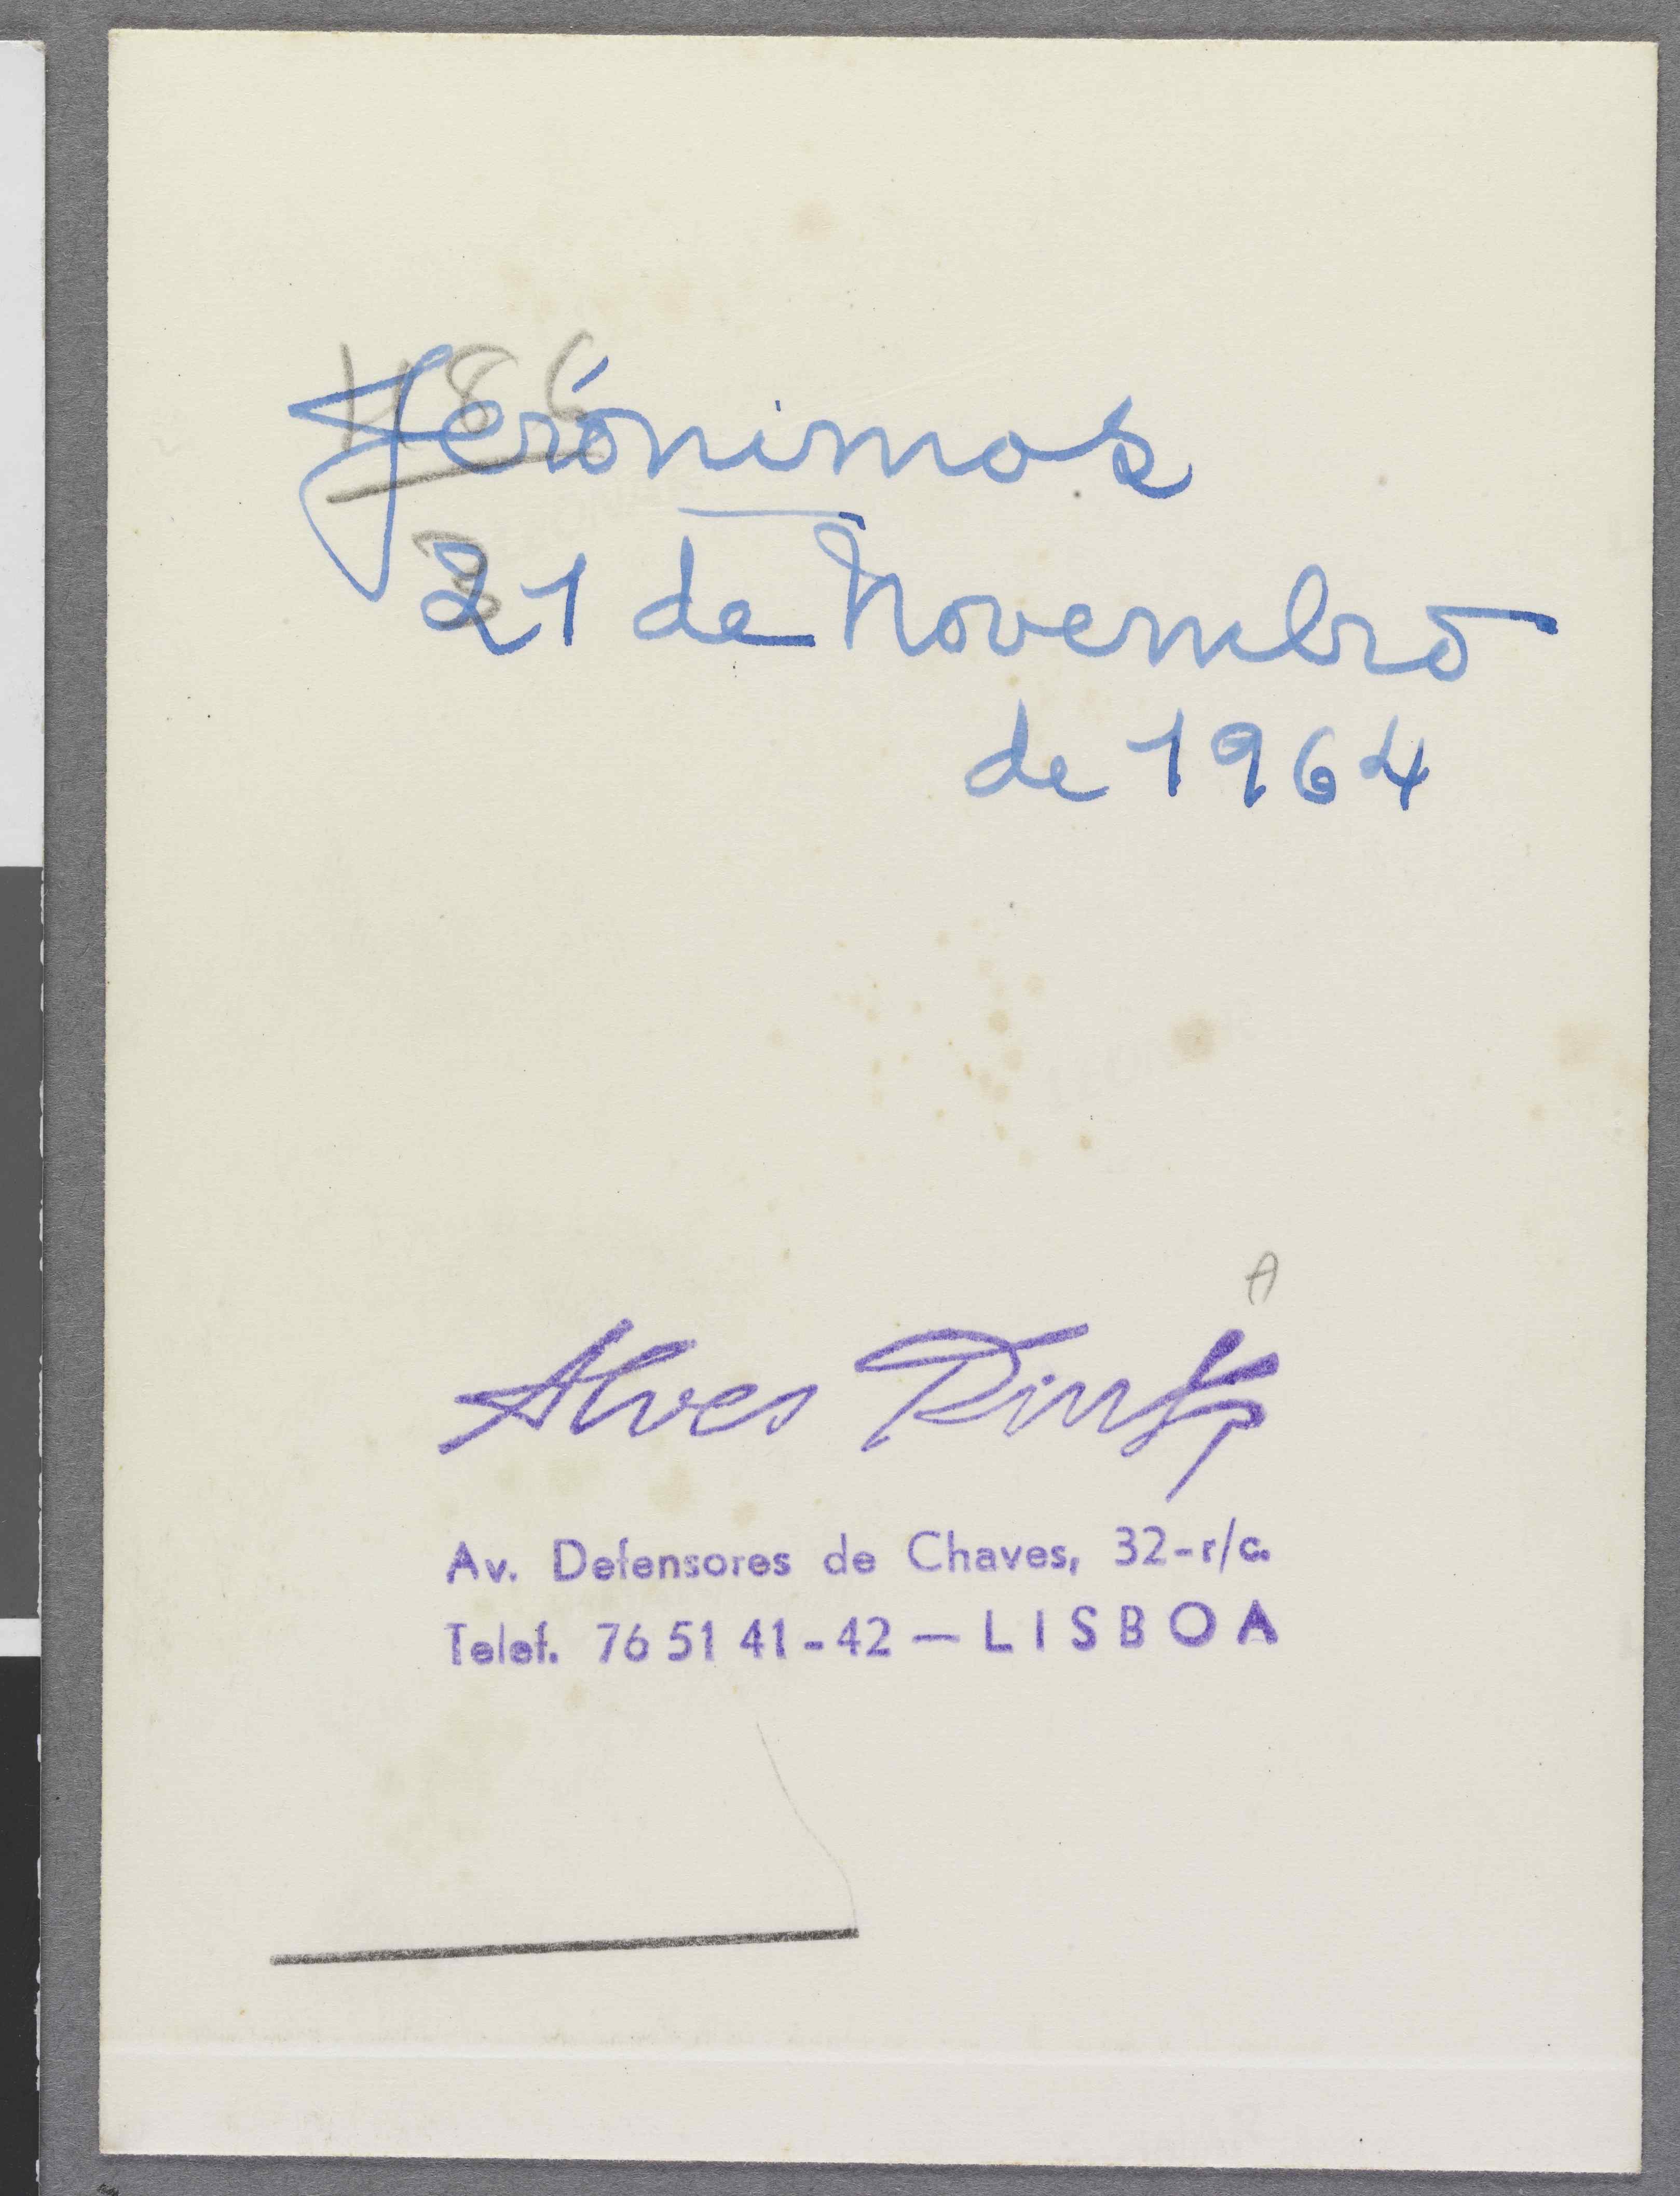 486
Jerónimos
3
21 de Novembro
de 1964
A
Alves Pinto
Av. Defensores de Chaves, 32-r/c.
Telef. 76 51 41-42 — LISBOA